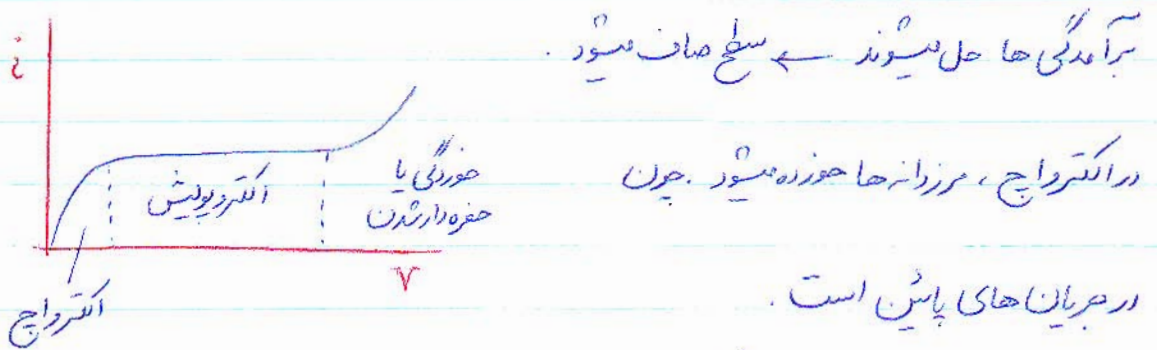 برآمدگی ها حل میشوند ← سطح صاف میشود .
در الکترواچ ، مرزدانه ها خورده میشود . چون
در جریان های پائین است .
i
الکتروپولیش
خوردگی یا
حفره دار شدن
V
الکترواچ